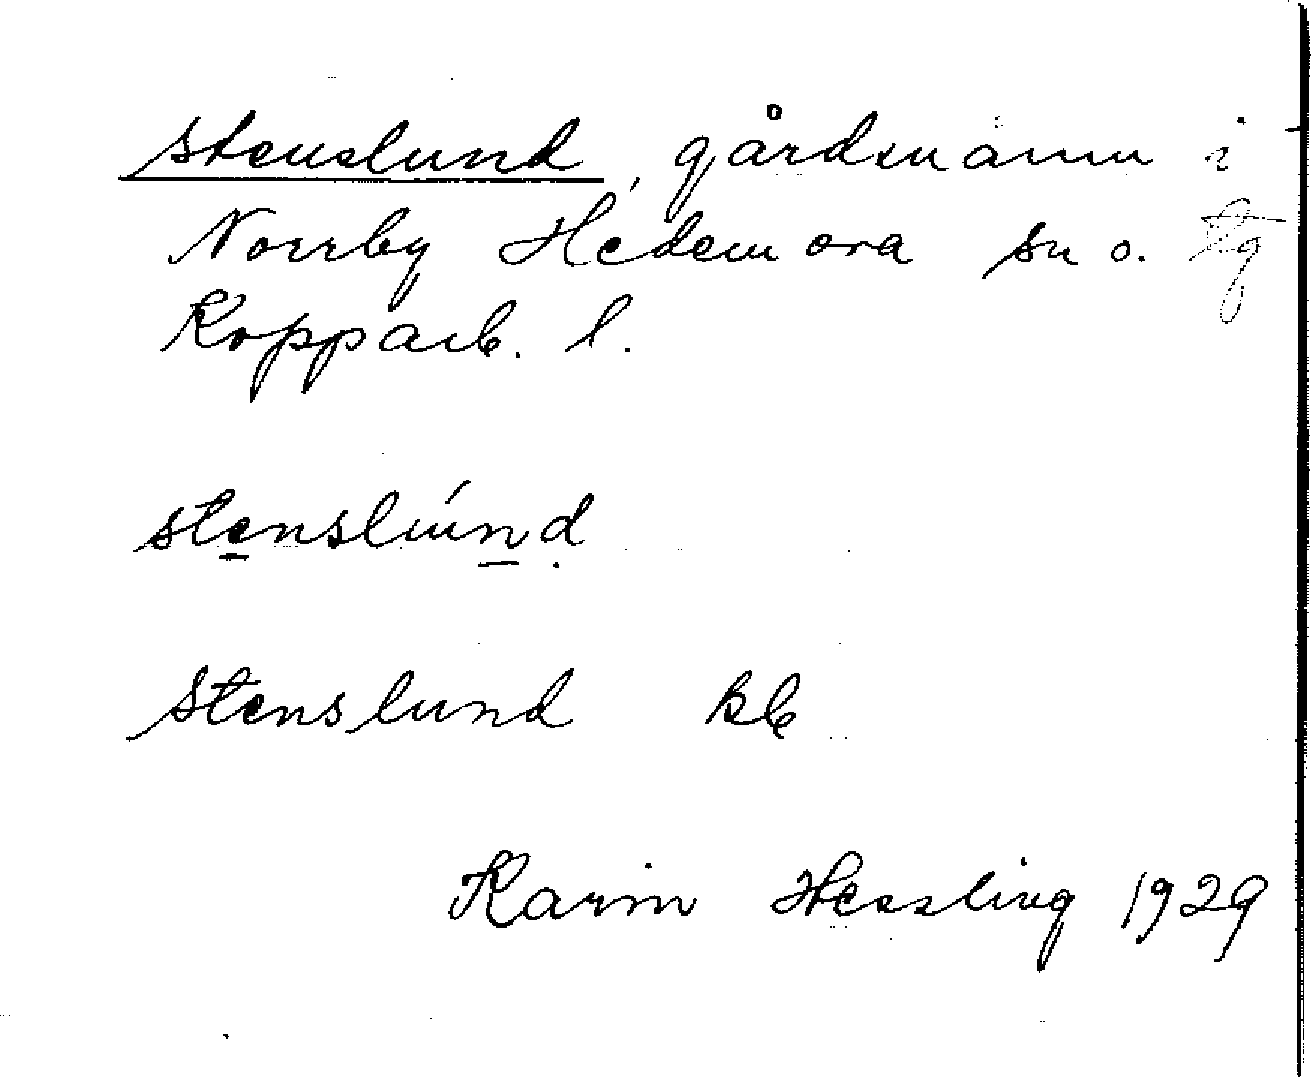 Stenslund, gårdsnamn i
Norrby Hedemora sn o. tg
Kopparb. l.
stenslúnd
Stenslund kb
Karin Hessling 1929